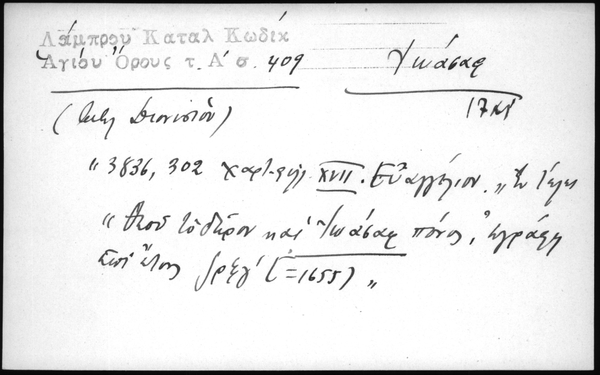 Λάμπρου Καταλ Κωδίκ
Ἁγίου Ὄρους τ. Α´ σ. 409
Ἰωάσαφ
17
(Μονῆς Διονυσίου)
" 3836, 302 χαρτ. φύλ XVII. Εὐαγγέλιον. " Ἐν τέλει
" Θεοῦ τὸ δῶρον καὶ Ἰωάσαφ πόνος, ἐγράφη
ἐπὶ ἔτους ͵ζρξγ´ (=1655) "